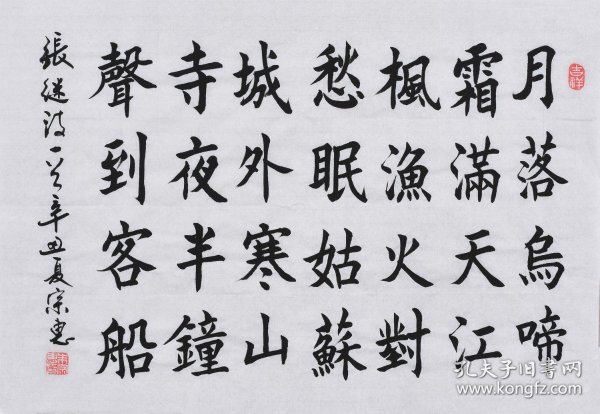 吉祥
月落烏啼
霜滿天江
楓漁火對
愁眠姑蘇
城外寒山
寺夜半鐘
聲到客船
張继诗一首辛丑夏宗惠
孔夫子旧书网
www.kongfz.com